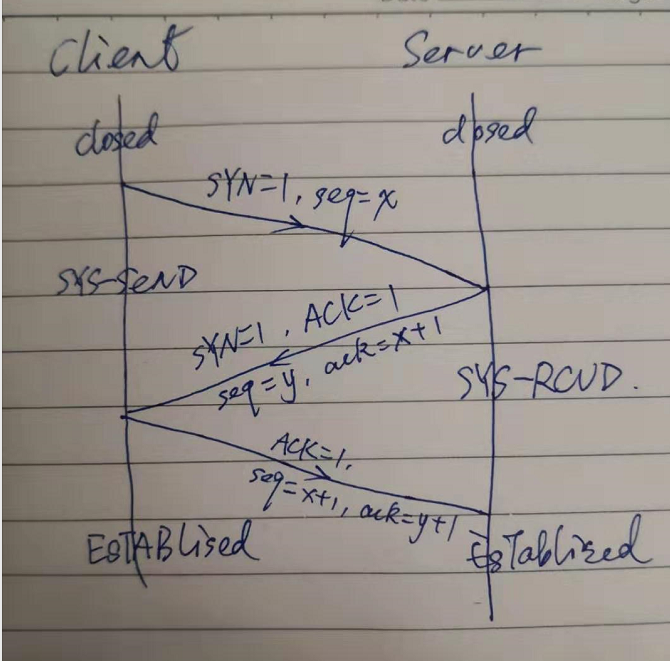 Client Server
closed closed
SYN=1, seq=x
SYS-SEND
SYN=1, ACK=1
seq=y, ack=x+1
SYS-RCVD.
ACK=1,
seq=x+1, ack=y+1
ESTABlised EsTablised